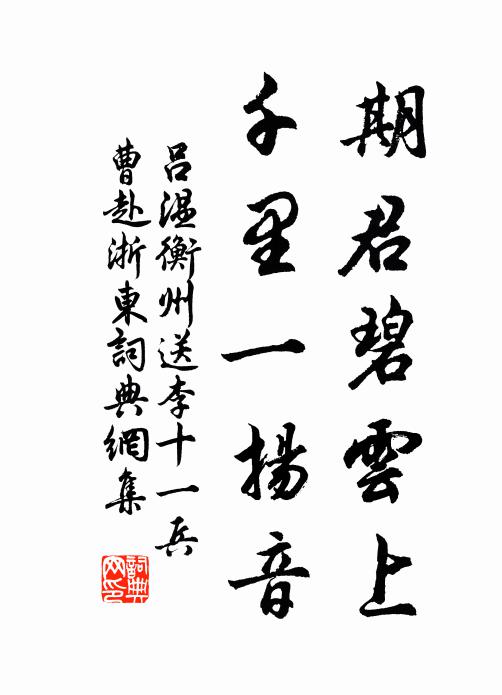 期君碧雲上
千里一揚音
呂溫衡州送李十一兵
曹赴浙東詞典網集
詞典
网印